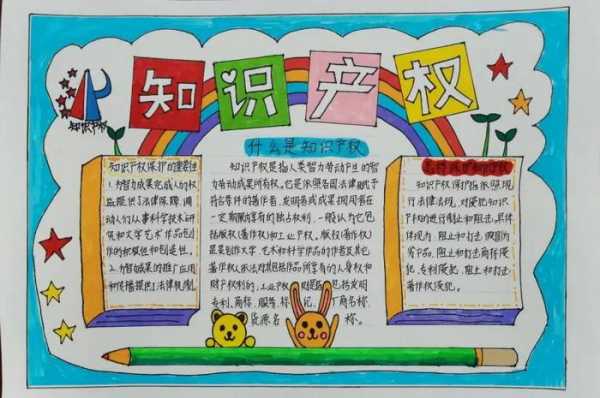 知识产权
知识产权
什么是知识产权
知识产权保护的重要性
1.为智力成果完成人的权
益提供了法律保障,调
动人们从事科学技术研
究和文学艺术作品创
作的积极性和创造性。
2.为智力成果的推广应用
和传播提供了法律机制
知识产权是指人类智力劳动产生的智
力劳动成果所有权。它是依照各国法律赋予
符合条件的著作者、发明者或成果拥有者在
一定期限内享有的独占权利,一般认为它包
括版权(著作权)和工业产权。版权(著作权)
是指创作文学、艺术和科学作品的作者及其他
著作权人依法对其作品所享有的人身权和
财产权利的
专利、商标、服务、标 记、厂商名称、
货源名 称。
知识产权保护指依照现
行法律法规,对侵犯知识
产权的进行制止和阻击,具体
体现为:阻止和打击假冒伪
劣产品,阻止和打击商标侵
犯,专利侵犯,阻止和打击
著作权侵犯。